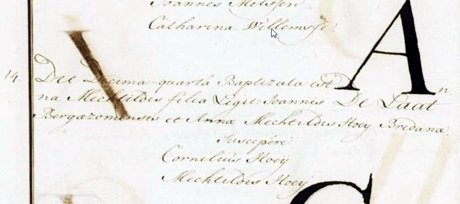 Joannes Molissen
Catharina Willemsse.
14. Die Decima-quartâ Baptizata est An
na Mechtildis filia Legit Joannis De Laat
Bergazomensis et Anna Mechtildis Hoey Bredana.
Suscepêre
Cornelius Hoey
Mechtildis Hoey